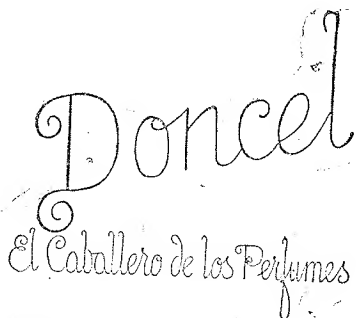 Doncel
El Caballero de los Perfumes